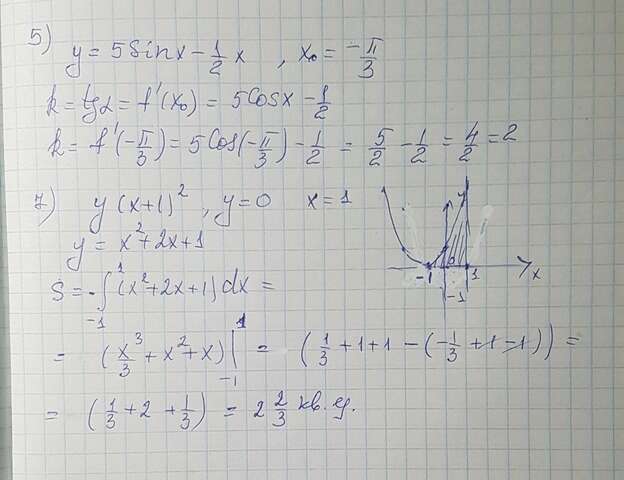 5) y = 5 sin x - 1/2 x , x₀ = -π/3
k = tg α = f'(x₀) = 5 cos x - 1/2
k = f'(-π/3) = 5 cos(-π/3) - 1/2 = 5/2 - 1/2 = 4/2 = 2
7) y (x+1)² , y = 0 x = 1
y = x² + 2x + 1
S = ∫₋₁¹ (x² + 2x + 1) dx =
= (x³/3 + x² + x) |₋₁¹ = (1/3 + 1 + 1 - (-1/3 + 1 - 1)) =
= (1/3 + 2 + 1/3) = 2 2/3 кв. ед.
-1 0 1 x
-1